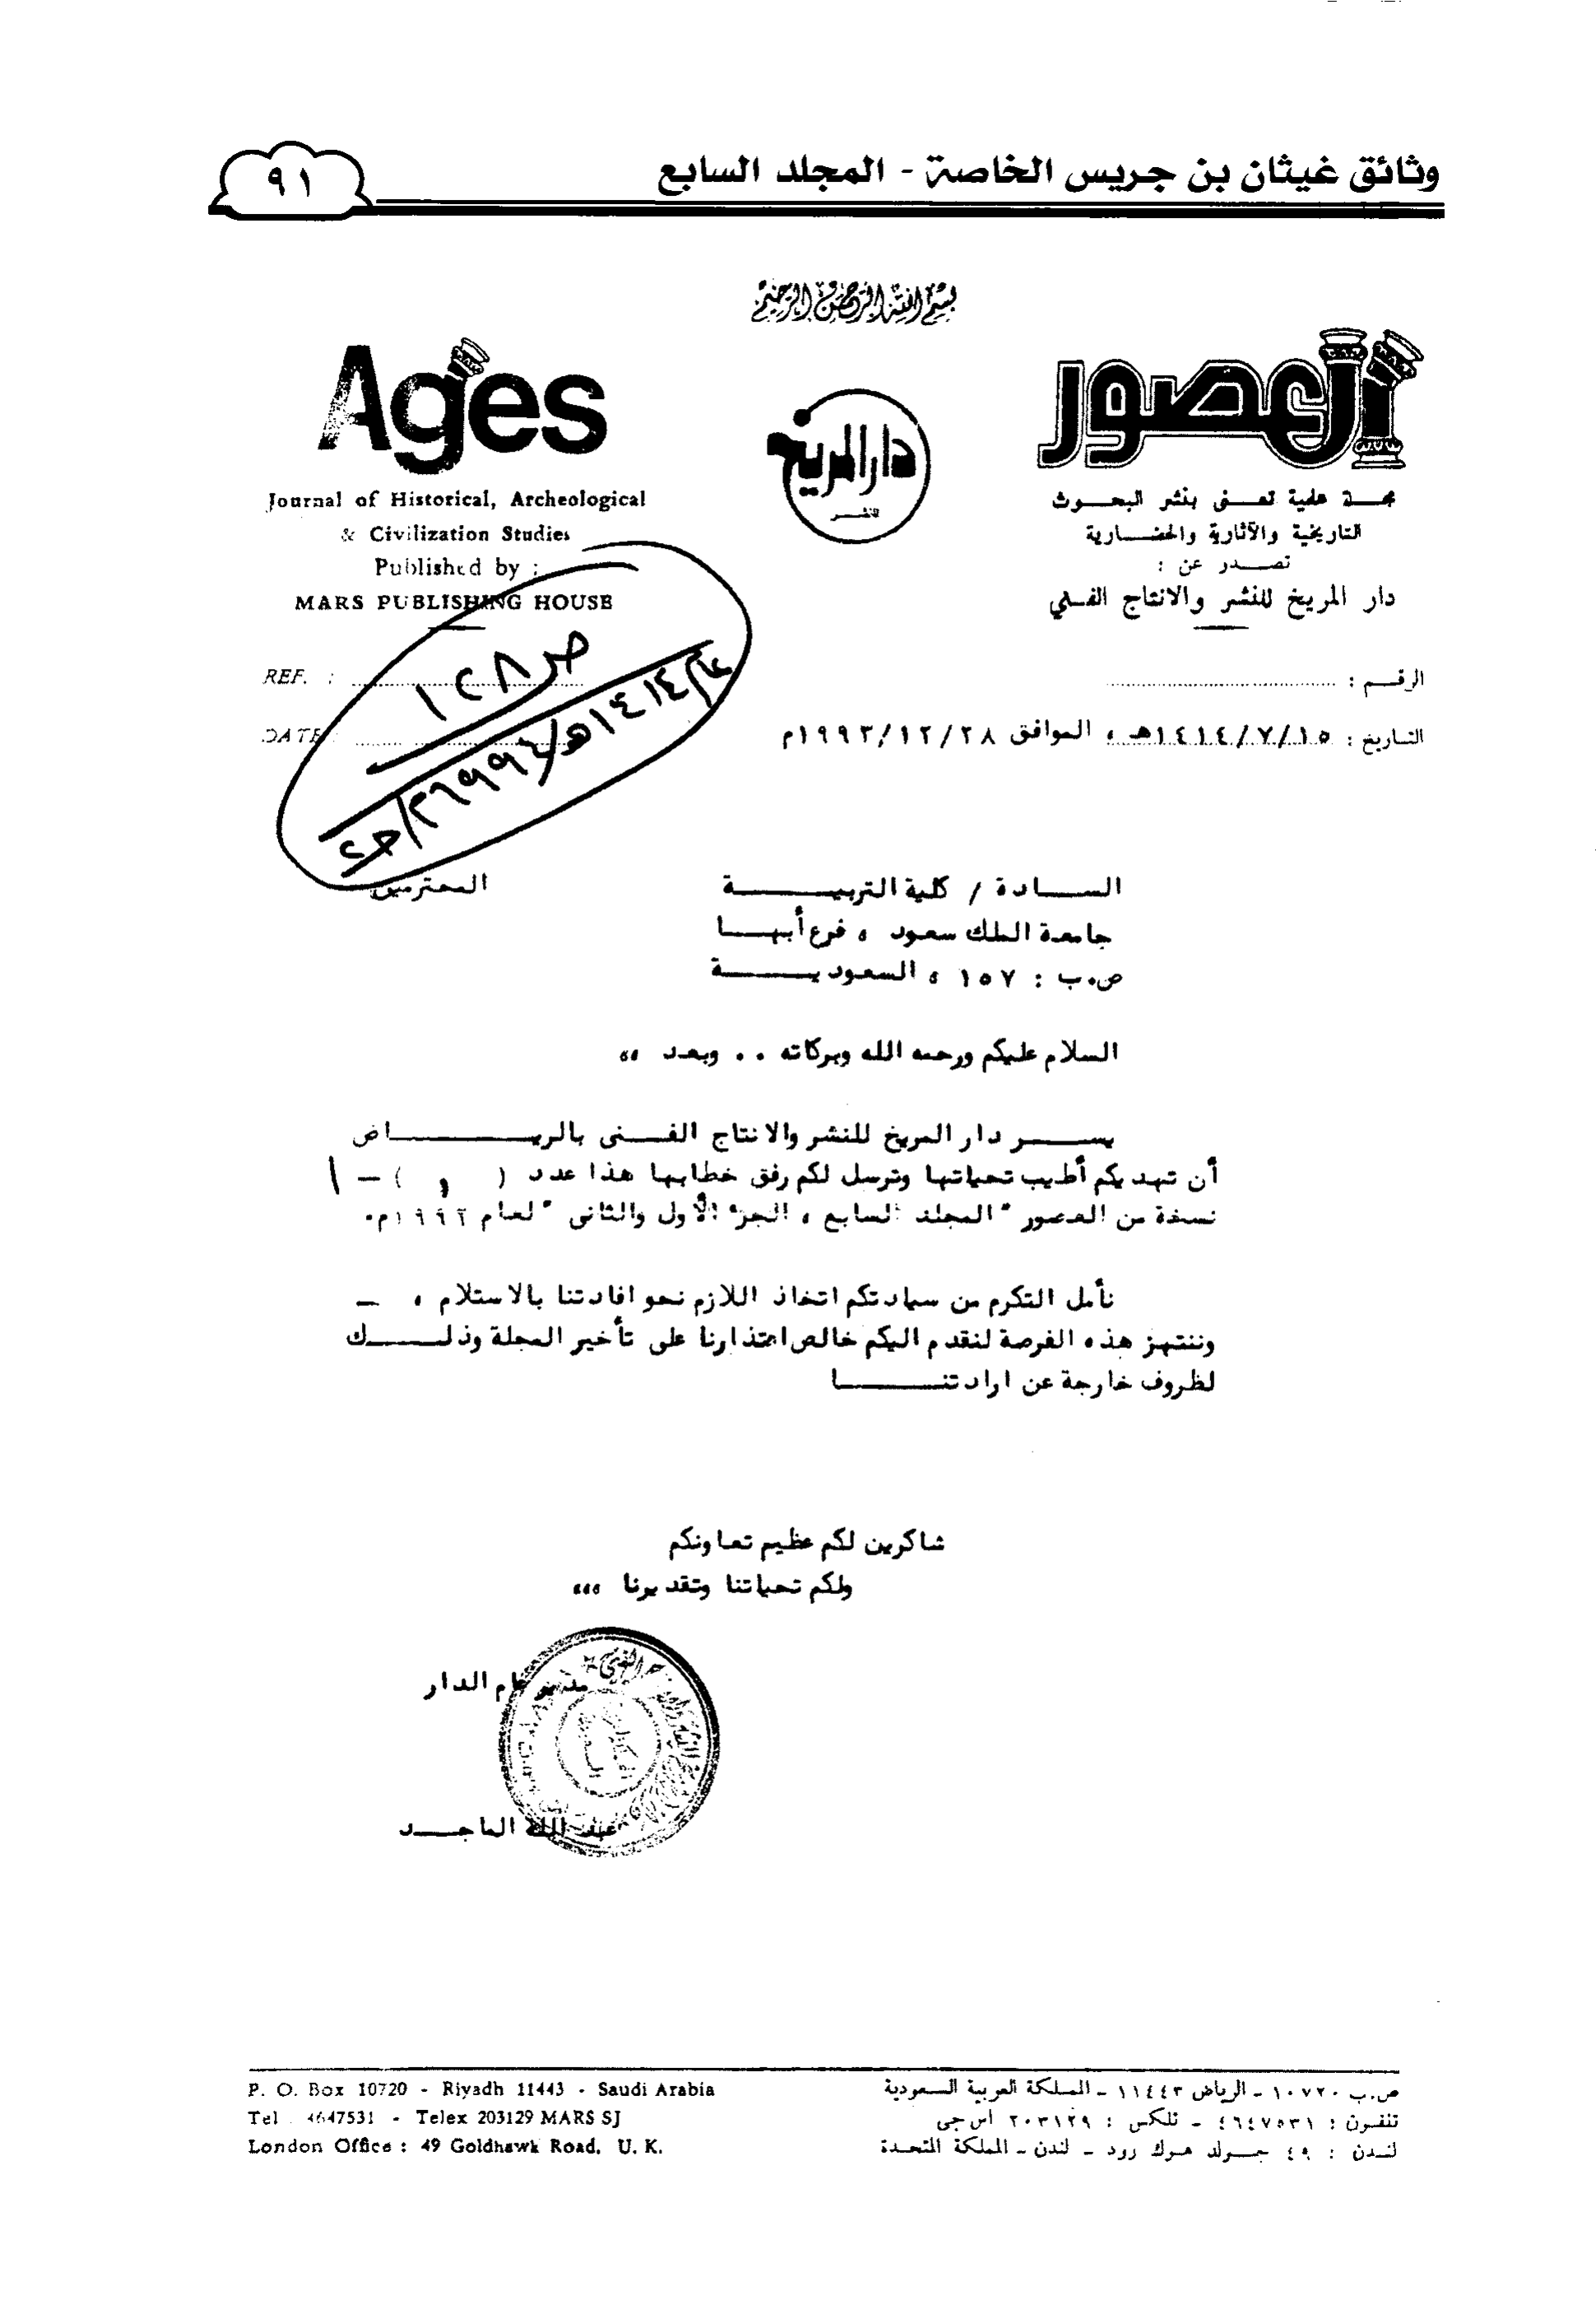 وثائق غيثان بن جريس الخاصة - المجلد السابع
٩١
بسم الله الرحمن الرحيم
العصور
مجلة علمية تعنى بنشر البحوث
التاريخية والآثارية والحضارية
تصدر عن :
دار المريخ للنشر والانتاج الفني
دار المريخ
للنشر
Ages
Journal of Historical, Archeological
& Civilization Studies
Published by :
MARS PUBLISHING HOUSE
الرقم :
REF. :
التاريخ : ١٤١٤/٧/١٥هـ ، الموافق ١٩٩٣/١٢/٢٨م
DATE
ص ١٢٨
عام ١٤١٤هـ/١٩٩٤م/ج٢
السادة / كلية التربية
المحترمين
جامعة الملك سعود ، فرع أبها
ص.ب : ١٥٧ ، السعودية
السلام عليكم ورحمه الله وبركاته . . وبعد ،،
يسر دار المريخ للنشر والانتاج الفنى بالرياض
أن تهديكم أطيب تحياتها وترسل لكم رفق خطابها هذا عدد ( و ) - ١
نسخة من العصور " المجلد السابع ، الجزء الأول والثانى " لعام ١٩٩٢م.
نأمل التكرم من سيادتكم اتخاذ اللازم نحو افادتنا بالاستلام ، -
وننتهز هذه الفرصة لنقدم اليكم خالص اعتذارنا على تأخير المجلة وذلك
لظروف خارجة عن ارادتنا
شاكرين لكم عظيم تعاونكم
ولكم تحياتنا وتقديرنا ،،،
مدير عام الدار
عبد الله الماجد
ص.ب ١٠٧٢٠ - الرياض ١١٤٤٣ - المملكة العربية السعودية
تلفون : ٤٦٤٧٥٣١ - تلكس : ٢٠٣١٢٩ اس جى
لندن : ٤٩ جولد هوك رود - لندن - المملكة المتحدة
P. O. Box 10720 - Riyadh 11443 - Saudi Arabia
Tel : 4647531 - Telex 203129 MARS SJ
London Office : 49 Goldhawk Road, U. K.